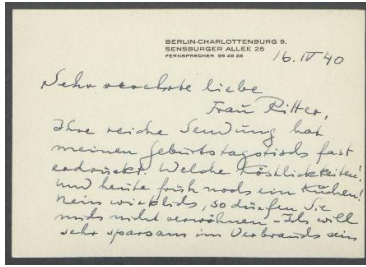 BERLIN-CHARLOTTENBURG 9.
SENSBURGER ALLEE 25
FERNSPRECHER 99 49 28
16. IV 40
Sehr verehrte liebe
Frau Ritter,
Ihre reiche Sendung hat
meinen Geburtstagstisch fast
erdrückt. Welche Köstlichkeiten!
und heute früh noch ein Kuchen!
Nein wirklich, so dürfen Sie
mich nicht verwöhnen – Ich will
sehr sparsam im Verbrauch sein